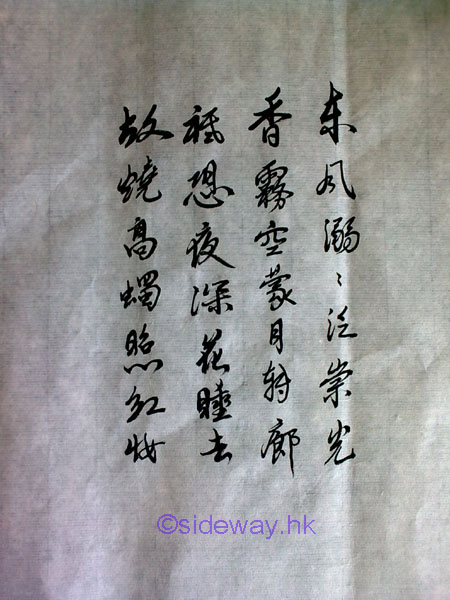 東風溺〻泛崇光
香霧空蒙月轉廊
祗恐夜深花睡去
故燒高蠋照紅妝
©sideway.hk